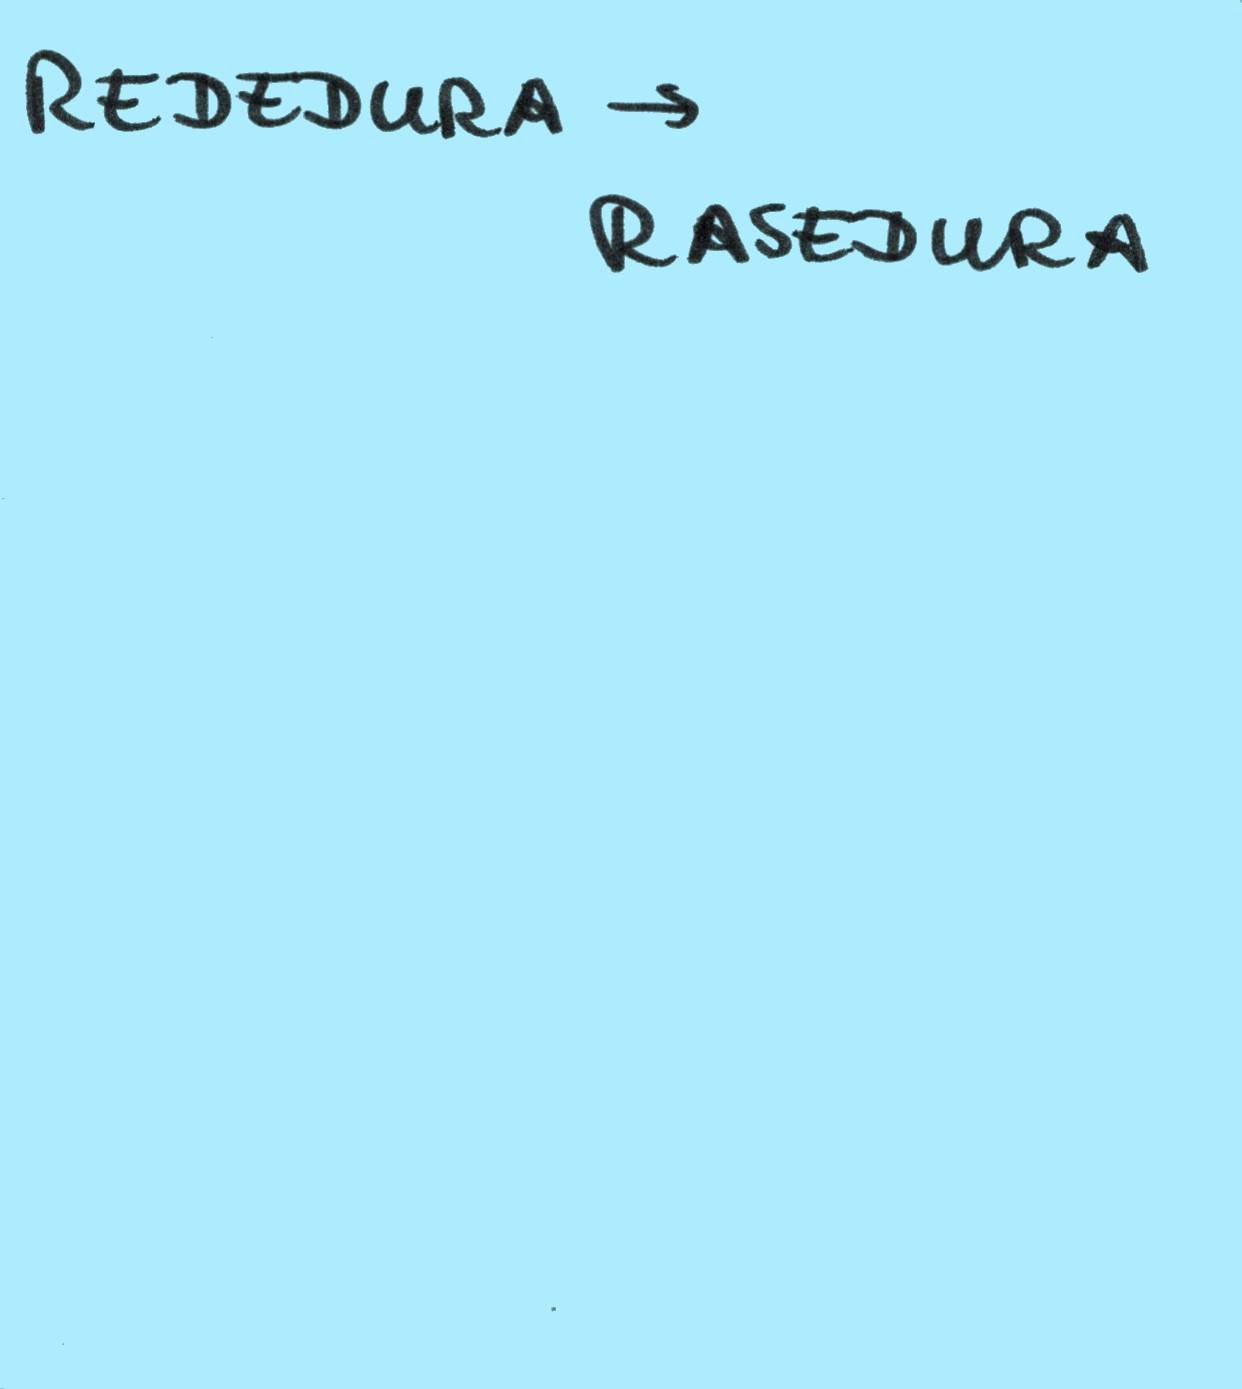 REDEDURA →
RASEDURA